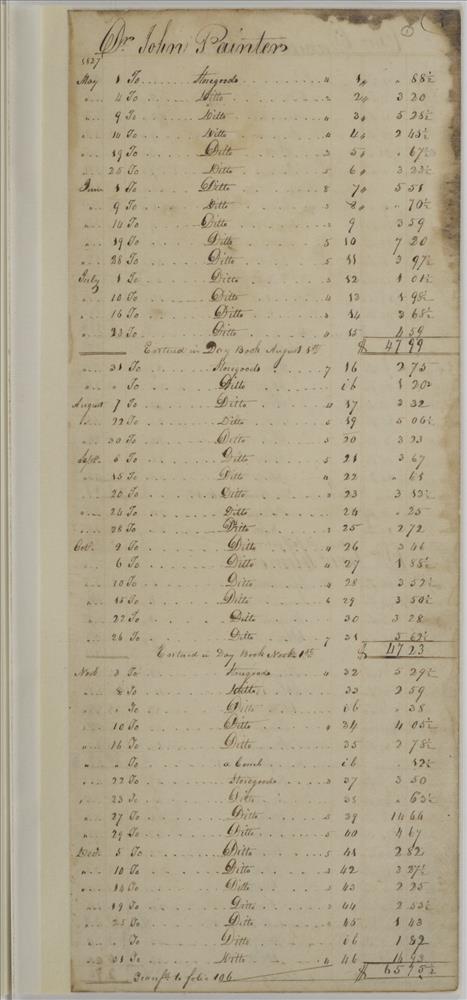 Dr John Painter
1827
May 1 To Storegoods 4 1 " 88½
" 4 To Ditto 2 2 3 20
" 9 To Ditto 4 3 5 25½
" 14 To Ditto 4 4 2 45½
" 19 To Ditto 3 5 " 67½
" 25 To Ditto 5 6 3 23½
June 1 To Ditto 8 7 5 51
" 9 To Ditto 3 8 " 70½
" 14 To Ditto 3 9 3 59
" 19 To Ditto 5 10 7 20
" 28 To Ditto 5 11 3 97½
July 1 To Ditto 3 12 1 01½
" 10 To Ditto 4 13 1 98½
" 16 To Ditto 3 14 3 68½
" 23 To Ditto 4 15 4 59
Entered in Day Book August 1st $ 47 99
" 31 To Storegoods 7 16 2 75
" " To Ditto ib 1 20½
August 7 To Ditto 4 17 3 32
" 22 To Ditto 6 19 5 06½
" 30 To Ditto 5 20 3 23
Sept. 5 To Ditto 5 21 3 67
" 15 To Ditto 4 22 " 61
" 20 To Ditto 3 23 3 12½
" 24 To Ditto 24 " 25
" 28 To Ditto 2 25 2 72
Oct. 2 To Ditto 4 26 3 46
" 6 To Ditto 4 27 1 88½
" 10 To Ditto 4 28 3 52½
" 15 To Ditto 6 29 3 50½
" 22 To Ditto 30 3 28
" 26 To Ditto 7 31 5 62½
Entered in Day Book Novbr 1st $ 47 23
Novbr 3 To Storegoods 4 32 5 29½
" 8 To Ditto 33 2 59
" " To Ditto ib " 38
" 10 To Ditto 4 34 4 05½
" 16 To Ditto 35 2 78½
" " To a Comb ib " 12½
" 22 To Storegoods 3 37 3 50
" 23 To Ditto 38 " 63½
" 27 To Ditto 5 39 14 66
" 29 To Ditto 5 40 4 67
Decbr 5 To Ditto 5 41 2 82
" 10 To Ditto 3 42 3 27½
" 14 To Ditto 3 43 2 25
" 19 To Ditto 3 44 2 53½
" 25 To Ditto 45 1 43
" " To Ditto ib 1 82
" 31 To Ditto 4 46 14 93
Transfd to folio 106 $ 65 75½